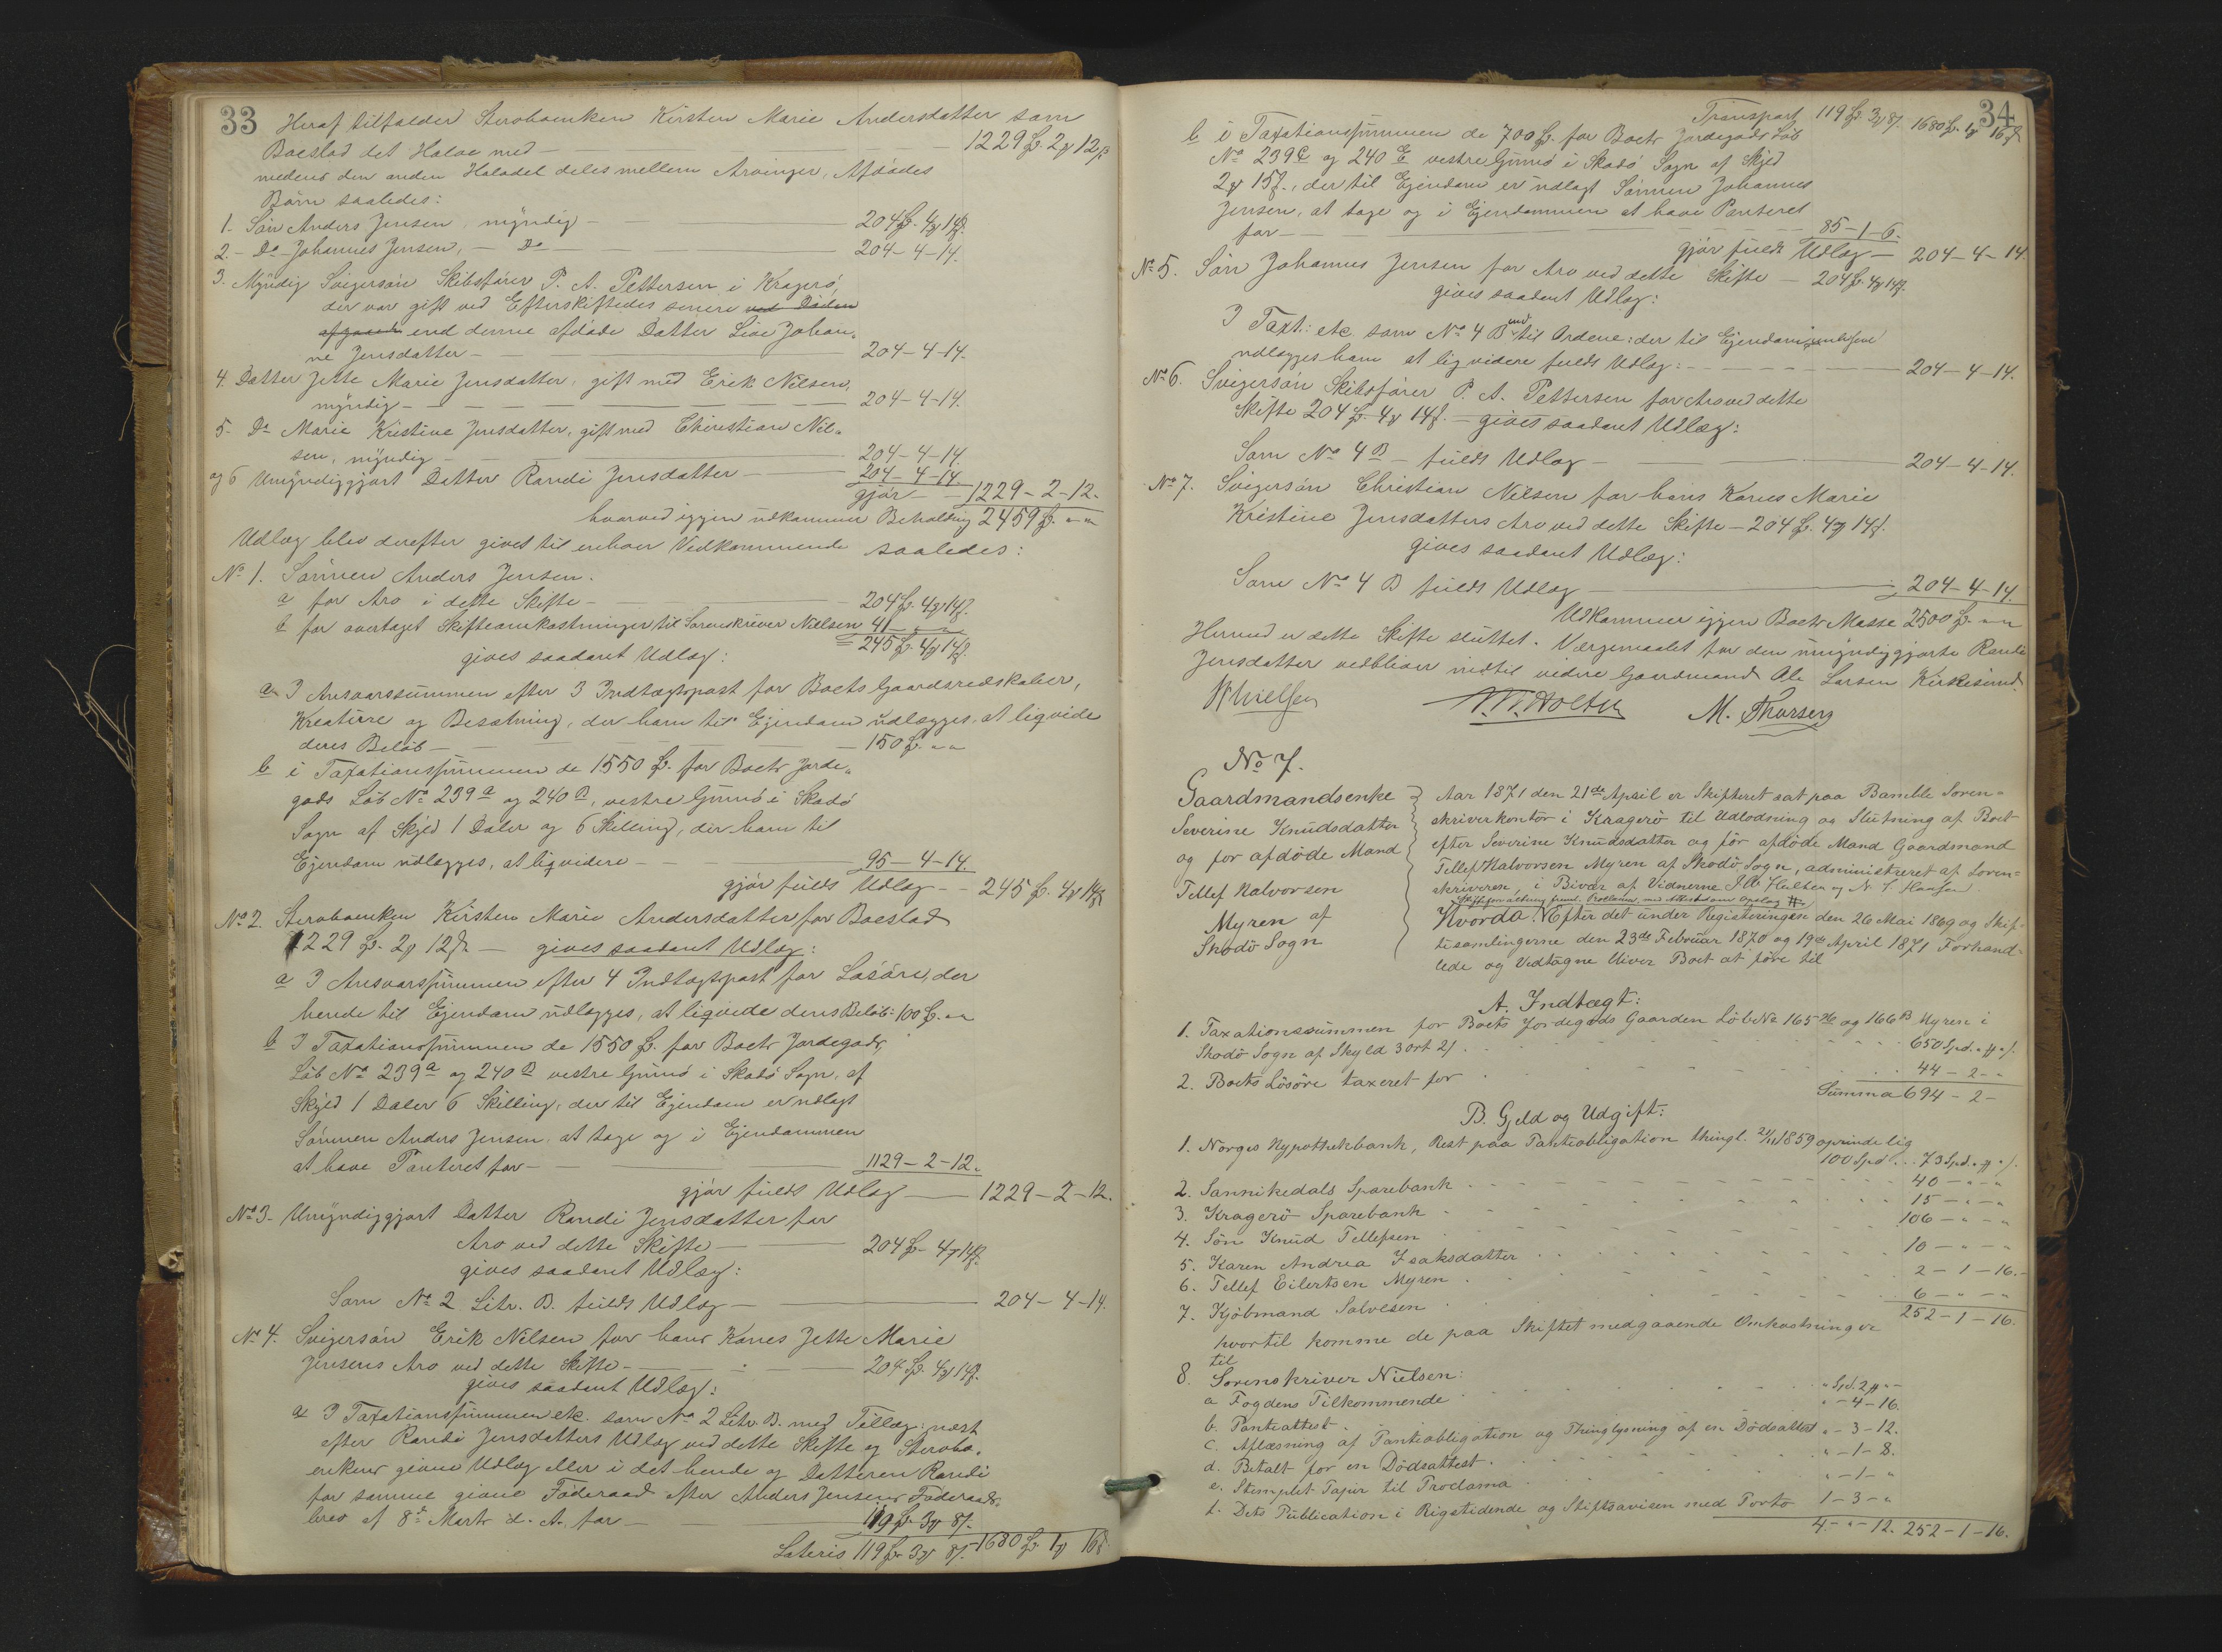 33
Heraf tilfalder Stervboenken Kirsten Marie Andersdatter som
Boeslod det Halve med — 1229 Sp. 2 # 12 ß
medens den anden Halvdel deles mellem Arvinger, Afdødes
Børn saaledes:
1. Søn Anders Jensen, myndig — 204 Sp. 4 # 14 ß.
2. — Do — Johannes Jensen, — Do — 204 - 4 - 14.
3. Myndig Svigersøn Skibsfører P. A. Pettersen i Kragerø,
der var gift ved Efterskiftedes senere ved Døden
afgaaede end denne afdøde Datter Live Johan-
ne Jensdatter — 204 - 4 - 14.
4. Datter Jette Marie Jensdatter, gift med Erik Nilsen,
myndig — 204 - 4 - 14.
5. Do Marie Kristine Jensdatter, gift med Christian Nil-
sen, myndig — 204 - 4 - 14.
og 6 Umyndiggjort Datter Randi Jensdatter — 204 - 4 - 14.
gjør — 1229 - 2 - 12.
hvorved igjen udkommer Beholdning 2459 Sp. " "
Udlæg blev derefter givet til enhver Vedkommende saaledes:
No 1. Sønnen Anders Jensen.
a for Arv i dette Skifte — 204 Sp. 4 # 14 ß.
b for overtaget Skifteomkostninger til Sorenskriver Nielsen 41 — " "
= 245 Sp. 4 # 14 ß.
gives saadant Udlæg:
a I Ansvarssummen efter 3 Indtægtspost for Boets Gaardsredskaber,
Kreature og Besætning, der ham til Ejendom udlægges, at liqvide
deres Beløb — 150 Sp. " "
b i Taxationssummen de 1550 Sp. for Boets Jorde-
gods Løb No 239 a og 240 B, vestre Gumø i Skadø
Sogn af Skyld 1 Daler og 6 Skilling, der ham til
Ejendom udlægges, at liqvidere — 95 - 4 - 14.
gjør fuldt Udlæg — 245 Sp. 4 # 14 ß
No 2. Stervboenken Kirsten Marie Andersdatter for Boeslod
1229 Sp. 2 # 12 ß — gives saadant Udlæg:
a I Ansvarssummen efter 4 Indtægtspost for Løsøre, der
hende til Ejendom udlægges, at liqvide dens Beløb: 100 Sp. " "
b I Taxationssummen de 1550 Sp. for Boets Jordegods,
Løb No 239 a og 240 B vestre Gumø i Skadø Sogn, af
Skyld 1 Daler 6 Skilling, der til Ejendom er udlagt
Sønnen Anders Jensen, at tage og i Ejendommen
at have Panteret for — 1129 - 2 - 12.
gjør fuldt Udlæg — 1229 - 2 - 12.
No 3. Umyndiggjort Datter Randi Jensdatter for
Arv ved dette Skifte — 204 Sp. 4 # 14 ß.
gives saadant Udlæg:
Som No 2 Litr. B. fuldt Udlæg — 204 - 4 - 14.
No 4. Svigersøn Erik Nilsen for hans Kones Jette Marie
Jensens Arv ved dette Skifte — 204 Sp. 4 # 14 ß.
gives saadant Udlæg:
a I Taxationssummen etc. som No 2 Litr. B. med Tillæg: næst
efter Randi Jensdatters Udlæg ved dette Skifte og Stervbo-
enkens givne Udlæg eller i det hende og Datteren Randi
for samme givne Føderaad efter Anders Jensens Føderaads-
brev af 8de Marts d. A. for — 119 Sp. 3 # 8 ß.
Lateris 119 Sp. 3 # 8 ß. 1680 Sp. 1 # 16 ß
34
Transport 119 Sp. 3 # 8 ß. 1680 Sp. 1 # 16 ß
b i Taxationssummen de 700 Sp. for Boets Jordegods Løb
No 239 C og 240 E vestre Gumø i Skadø Sogn af Skyld
2 # 15 ß., der til Ejendom er udlagt Sønnen Johannes
Jensen, at tage og i Ejendommen at have Panteret
for — 85 - 1 - 6.
gjør fuldt Udlæg — 204 - 4 - 14.
No 5. Søn Johannes Jensen for Arv ved dette Skifte — 204 Sp. 4 # 14 ß.
gives saadant Udlæg:
I Taxt: etc. som No 4 B ind til Ordene: der til Ejendom
udlægges ham at liqvidere fuldt Udlæg: — 204 - 4 - 14.
No 6. Svigersøn Skibsfører P. A. Pettersen for Arv ved dette
Skifte 204 Sp. 4 # 14 ß. — gives saadant Udlæg:
Som No 4 B — fuldt Udlæg — 204 - 4 - 14.
No 7. Svigersøn Christian Nilsen for hans Kones Marie
Kristine Jensdatters Arv ved dette Skifte — 204 Sp. 4 # 14 ß.
gives saadant Udlæg:
Som No 4 B fuldt Udlæg — 204 - 4 - 14.
Udkommer igjen Boets Masse 2500 Sp. " "
Hermed er dette Skifte sluttet. Værgemaalet for den umyndiggjorte Randi
Jensdatter vedbliver indtil videre Gaardmand Ole Larsen Kirkesund.
Nielsen
M. Thorsen
No 7.
Gaardmandsenke
Severine Knudsdatter
og før afdøde Mand
Tellef Halvorsen
Myren af
Skodø Sogn
Aar 1871 den 21de April er Skifteret sat paa Bamble Soren-
skriverkontor i Kragerø til Udlodning og Slutning af Boet
efter Severine Knudsdatter og før afdøde Mand Gaardmand
Tellef Halvorsen Myren af Skodø Sogn, administreret af Soren-
skriveren, i Bivær af Vidnerne og N. S. Hansen.
Hvorda: Efter det under Registeringen den 26 Mai 1869 og Skif-
tesamlingerne den 23de Februar 1870 og 19de April 1871 Forhand-
lede og Vedtagne bliver Boet at føre til
A. Indtægt:
1. Taxationssummen for Boets Jordegods Gaarden Løb No 165 og 166 B Myren i
Skodø Sogn af Skyld 3 ort 2 ß. 650 Spd. " # " ß.
2. Boets Løsøre taxeret for 44 - 2 - "
Summa 694 - 2 -
B. Gjeld og Udgift:
1. Norges Hypothekbank, Rest paa Pantobligation thingl. 21/11 1859 oprindelig
100 Spd. . . 73 Spd. " # " ß.
2. Sannikedals Sparebank 40 - " - "
3. Kragerø Sparebank 15 - " - "
4. Søn Knud Tellefsen 106 - " - "
5. Karen Andrea Isaksdatter 10 - " - "
6. Tellef Eilertsen Myren 2 - 1 - 16.
7. Kjøbmand Salvesen 6 - " - "
252 - 1 - 16.
hvortil komme de paa Skiftet medgaaende Omkostninger
til
8. Sorenskriver Nielsen:
a Fogdens Tilkommende " Spd. 2 # " -
b. Panteattest " - 4 - 16.
c. Aflæsning af Pantobligation og Thinglysning af en Dødsattest " - 3 - 12.
d. Betalt for en Dødsattest " - 1 - 8.
e. Stemplet Papir til Proclama " - 1 - "
f. Dets Publication i Rigstidende og Stiftsavisen med Porto 1 - 3 - "
4 - " - 12. 252 - 1 - 16.